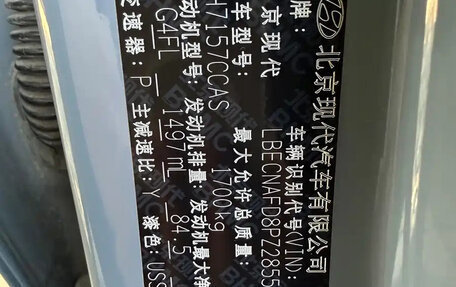 北京现代汽车有限公司
牌: 车辆识别代号(VIN):
京现代 LBECNAFD8PZ2855
车型号: 最大允许总质量:
H7157CCAS 1700kg
动机型号: 发动机排量: 发动机最大净
G4FL 1497mL 84.5
变速器: P 主减速比: Y 漆色: